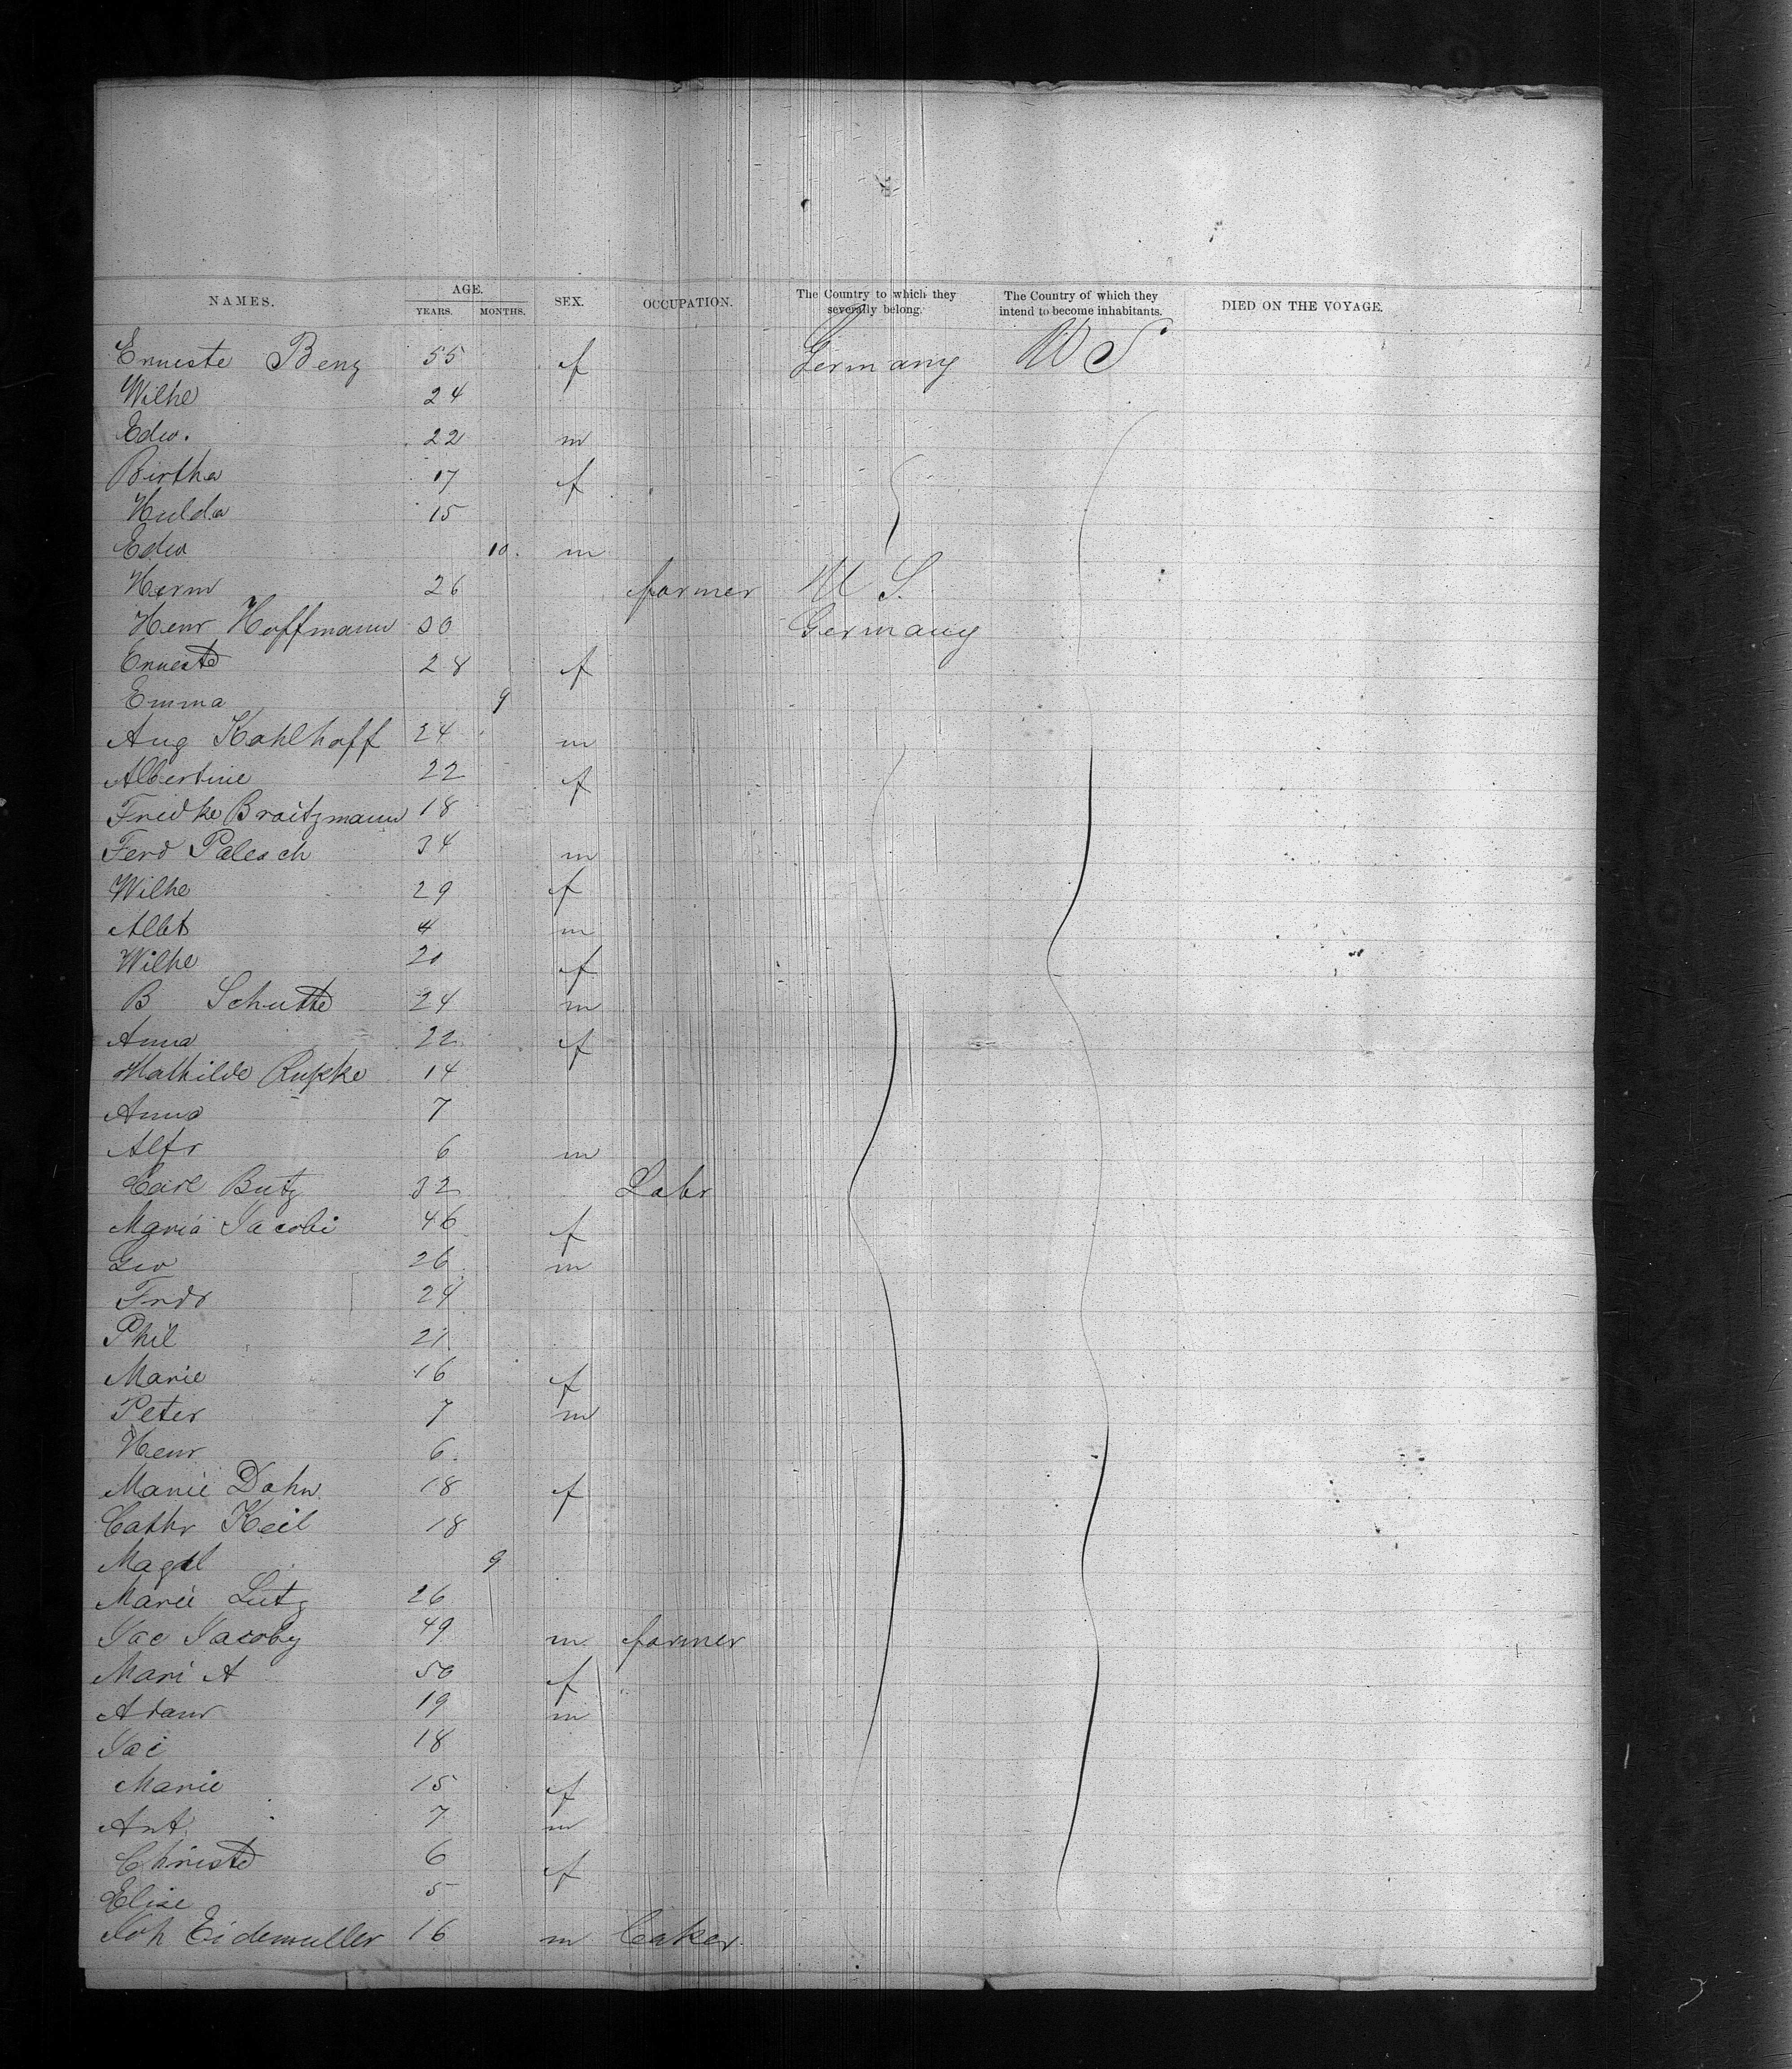 NAMES. AGE. YEARS. MONTHS. SEX. OCCUPATION. The Country to which they severally belong. The Country of which they intend to become inhabitants. DIED ON THE VOYAGE.
Erneste Benz 55 f Germany U S
Wilhe 24
Edw. 22 m
Birtha 17 f
Hulda 15
Edw 10 m
Herm 26 farmer U S.
Henr Hoffmann 30 Germany
Erneste 28 f
Emma 9
Aug Kahlhoff 24 m
Albertine 22 f
Friedke Braitzmann 18
Ferd Palesch 34 m
Wilhe 29 f
Albt 4 m
Wilhe 20 f
B Schutte 24 m
Anna 22 f
Mathilde Rupke 14
Anna 7
Alfr 6 m
Carl Butz 32 Labr
Maria Jacobi 46 f
Geo 26 m
Frdr 24
Phil 21
Marie 16 f
Peter 7 m
Henr 6
Marie Dahn 18 f
Cathr Keil 18
Magd 9
Marie Lutz 26
Jac Jacoby 49 m farmer
Mari A 50 f
Adam 19 m
Jac 18
Marie 15 f
Ant. 7 m
Christe 6 f
Elise 5
Joh Eidemuller 16 m baker